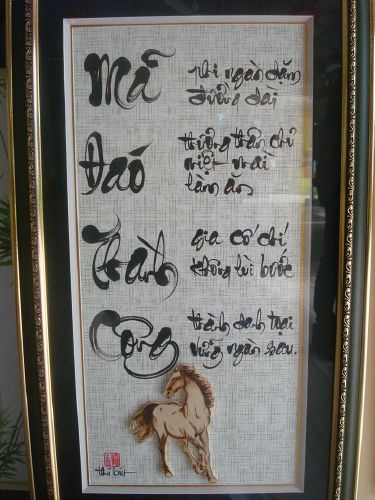 Mã phi ngàn dặm
đường dài
Đáo thưởng thân chủ
miệt mài
làm ăn
Thành gia cố chí
không lùi bước
Công thành danh toại
vững ngàn sau.